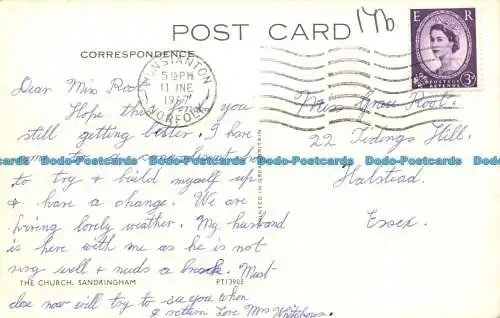 POST CARD
17b
E R
POSTAGE REVENUE
3D
CORRESPONDENCE
HUNSTANTON
5 PM
11 JNE
196
NORFOLK
Dear Miss Root
Hope this you
still getting better. I have
to try & build myself up
& have a change. We are
having lovely weather. My husband
is here with me as he is not
very well & needs a break. Must
close now will try to see you when
I return Love Mrs Whitehouse.
Miss Grace Root.
22 Tidings Hill.
Halstead
Essex.
Dodo-Postcards Dodo-Postcards Dodo-Postcards Dodo-Postcards Dodo-Postcards
PRINTED IN GREAT BRITAIN
THE CHURCH, SANDRINGHAM
PT13905